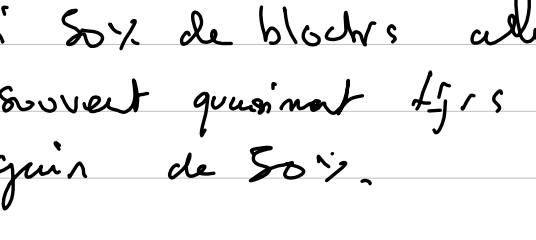 50% de blocks
souvent quasiment tjrs
gain de 50%.